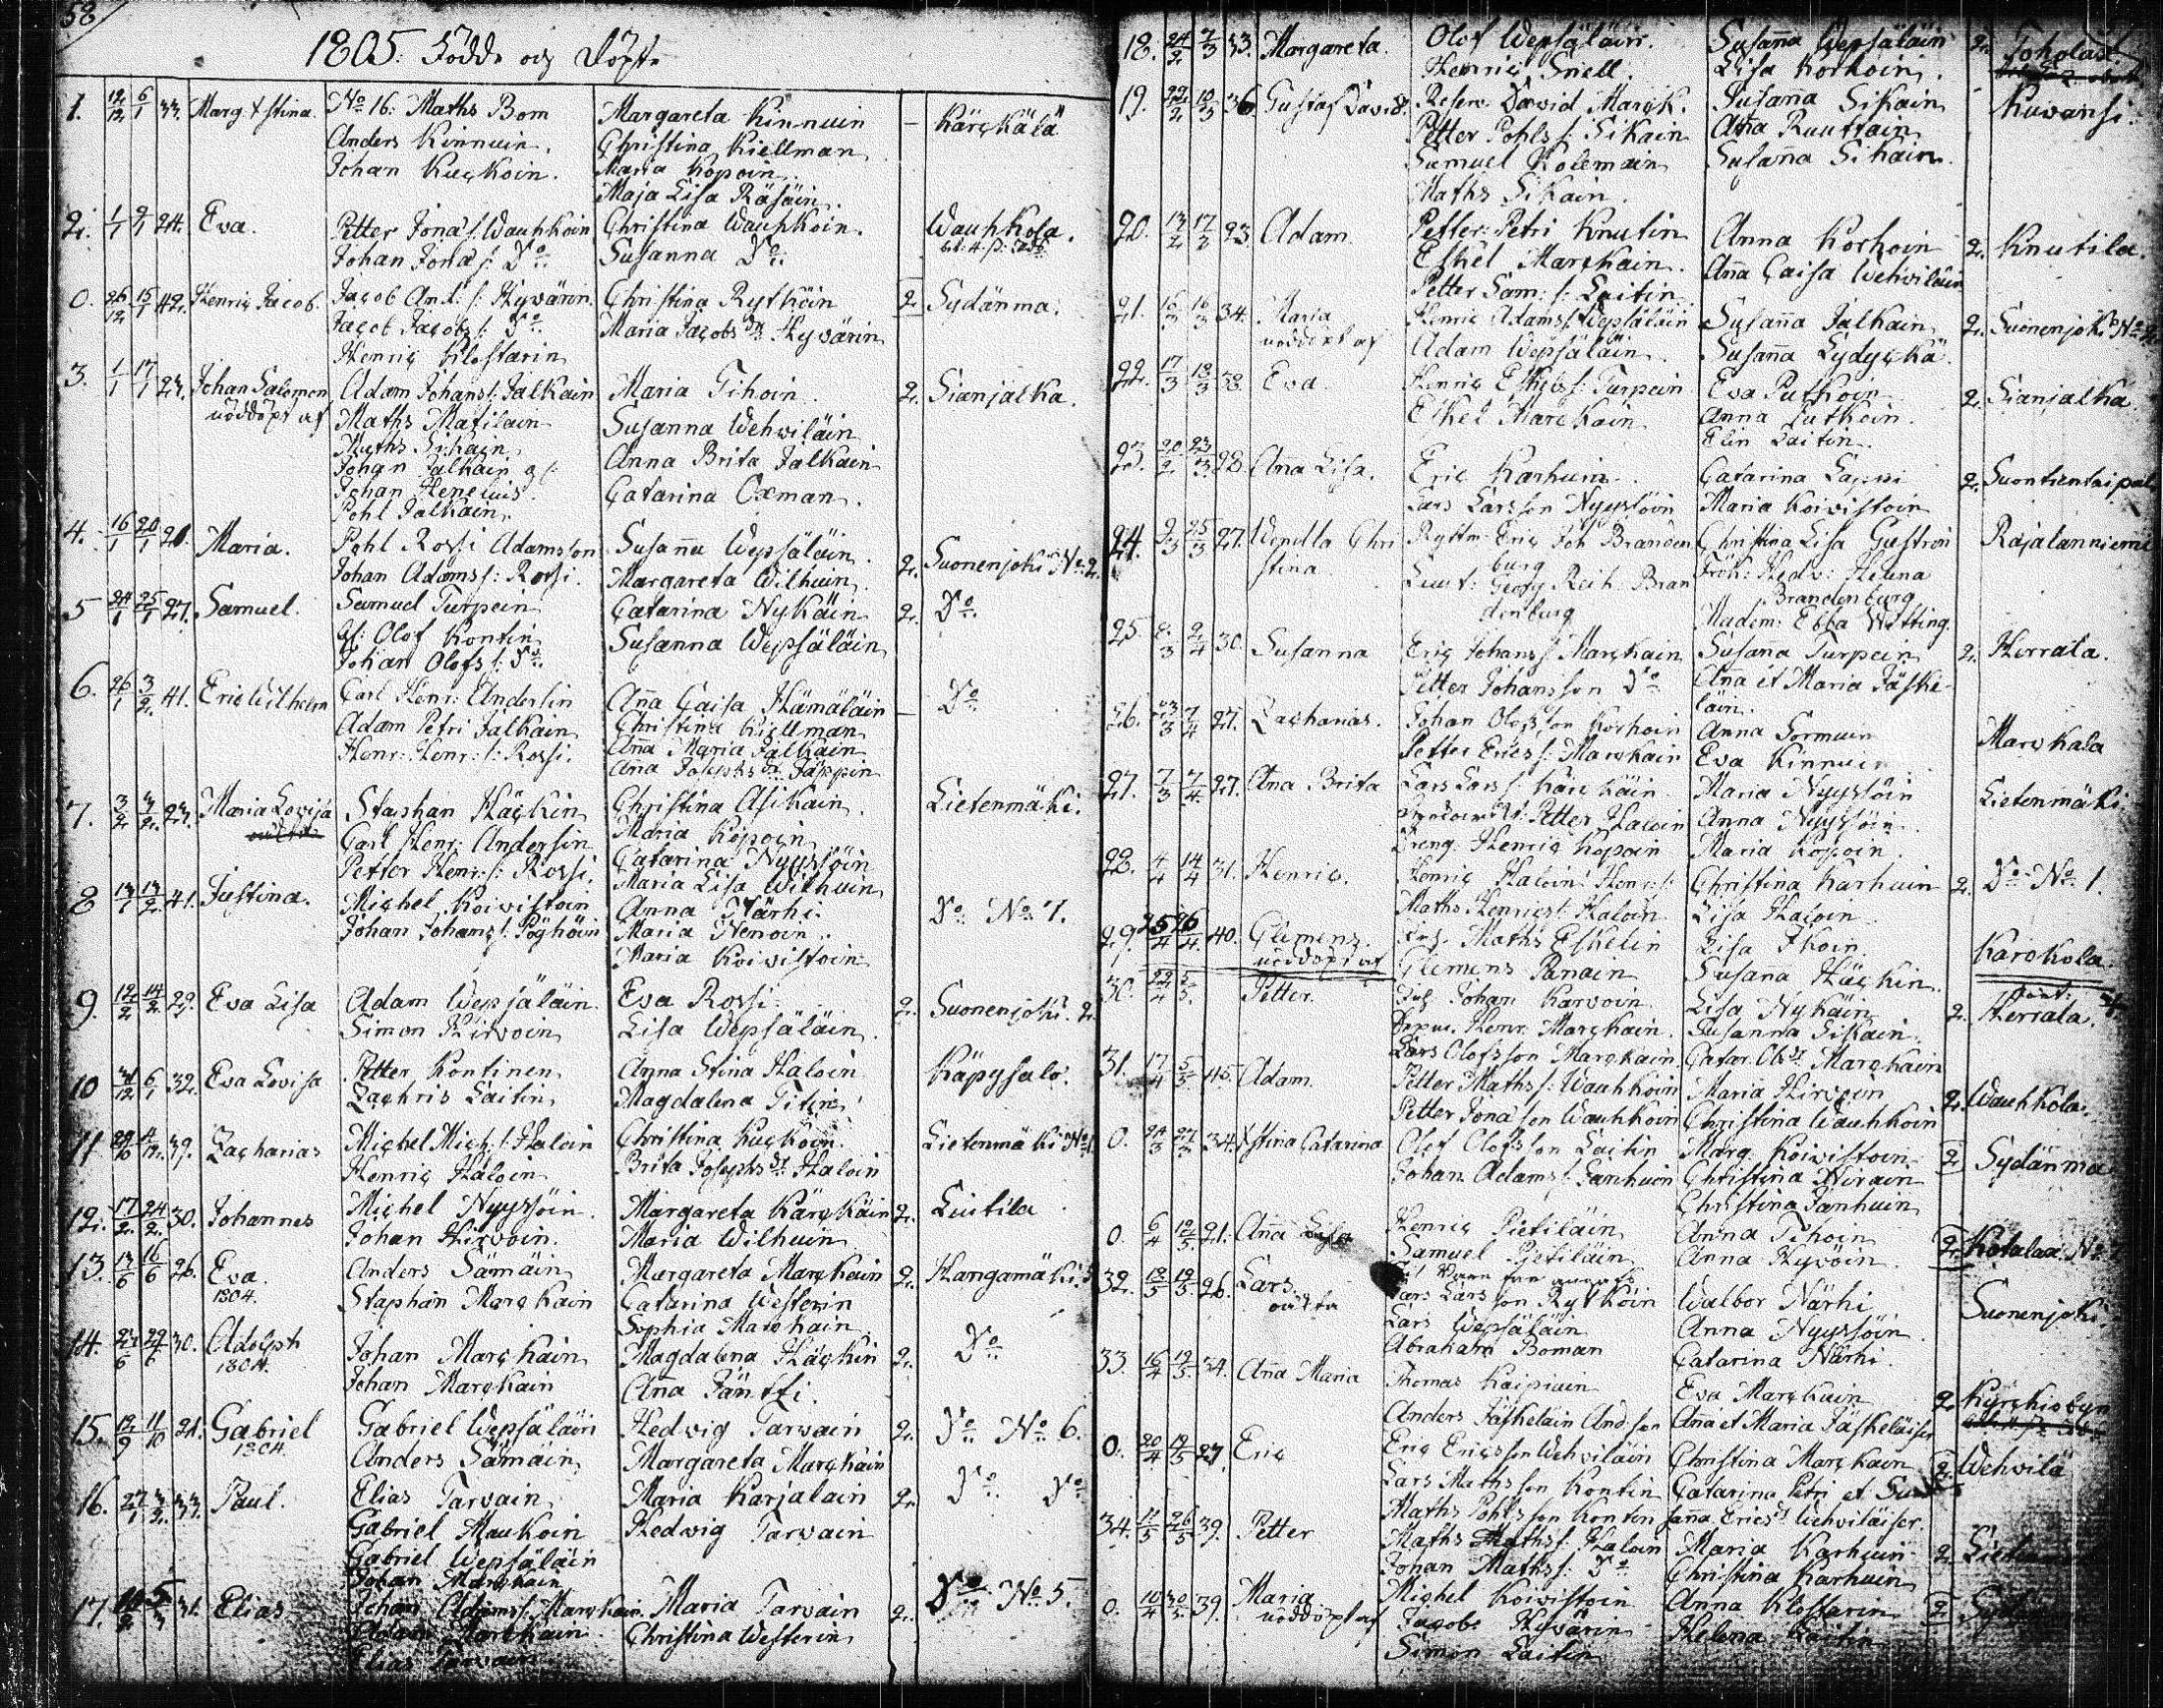 58
1805. Födde och Döpte
1. 12/12 6/1 33. Marg Xstina. No 16: Maths Bom Margareta Kinnuin — Kärgkälä
Anders Kinnuin. Christina Kiellman
Johan Kuckoin. Maria Kopoin.
Maja Lisa Räsäin.
2. 1/1 9/1 24. Eva. Petter Jonas: Wauhkoin Christina Wauhkoin. Wauhkola.
Johan Jonas: Do. Susanna Do.
0. 26/12 15/1 42. Henric Jacob. Jacob And: s: Hyvärin. Christina Rytköin 2. Sydänma.
Jacob Jacobs: Do. Maria Jacobs Dr Hyvärin
Henric Klostarin
3. 1/1 17/1 23. Johan Salomon Adam Johans: Jalkain Maria Tihoin 2. Sianjalka.
nöddöpt af Maths Matilain Susanna Wehwiläin
Maths Sikain Anna Brita Jalkain
Johan Jalkain
Johan Heneluis. Catarina Oxman.
Pohl Jalkain.
4. 16/1 20/1 21. Maria. Pohl Rossi Adamsson Susanna Wepsäläin. 2. Suonenjoki No. 2.
Johan Adamss: Rossi. Margareta Wilhuin
5 24/1 25/1 27. Samuel. Samuel Turpein Catarina Nykäin 2. Do.
Olof Kontin Susanna Wepsäläin
Johan Olofs: Do.
6. 26/1 3/2 41. Eric Wilhelm Carl Henr: Andersin Anna Caisa Hämäläin — Do
Adam Petri Jalkain Christina Kiellman
Henr: Henr: s: Rossi. Anna Maria Jalkain
Ana Josephs Dr Jäppin
7. 3/2 3/2 23. Maria Lovisa Staphan Häckin Christina Asikain Lietenmäki.
Carl Henr: Andersin Maria Kopoin
Petter Henr: s: Rossi. Catarina Nyyssöin
Maria Lisa Wilhuin
8 13/1 13/2 41. Justina. Michel Koivistoin Anna Närhi. Do. No. 7.
Johan Johans: Pöyhöin Maria Nenoin.
Maria Koivistoin
9. 12/2 14/2 29. Eva Lisa Adam Wepsäläin. Eva Rossi. 2. Suonenjoki. 2.
Simon Hirvoin Lisa Wepsäläin.
10 31/12 6/1 32. Eva Lovisa Petter Kontinen Anna Stina Haloin Käpysalo.
Zachris Laitin Magdalena Titin
11 29/10 4/12 39. Zacharias Michel Mich: s: Haloin Christina Kuckoin. Lietenmäki No 1
Henric Haloin Brita Josephs Dr Haloin
12. 17/2 24/2 30. Johannes Michel Nyyssöin. Margareta Kärckäin 2. Liutila
Johan Hirvoin. Maria Wilhuin
13. 13/6 16/6 26. Eva. Anders Sämäin Margareta Marckain 2. Hangamäki. 5
1804. Staphan Marckain Catarina Westerin
Sophia Marckain
14. 29/6 30. Adolph Johan Marckain Magdalena Häckin 2. Do
1804. Johan Marckain Anna Jäntti.
15. 12/9 11/10 21. Gabriel Gabriel Wepsäläin Hedwig Tarvain 2. Do. No. 6.
1804. Anders Sämäin Margareta Marckain
16. 27/1 3/2 33. Paul. Elias Tarvain Maria Karjalain 2. Do. Do
Gabriel Maukoin Hedwig Tarvain
Gabriel Wepsäläin
Johan Marckain
17. 5/3 31. Elias Johan Adams: Marckain. Maria Tarvain 2. Do No. 5.
Adam Marckain Christina Westerin
Elias Tarvain
18. 24/2 7/3 33. Margareta. Olof Wepsäläin. Susanna Wepsäläin 2.
Henric Snell. Lisa Korhoin.
19. 22/2 10/3 36. Gustaf David. Reserv. David Marck. Susanna Sikain Kuvansi.
Petter Pohls: Sikain Anna Ruuttain
Samuel Kolemain Susanna Sikain.
Maths Sikain.
20. 13/2 17/3 23 Adam Petter Petri Knutin Anna Korhoin 2. Knutila.
Eskel Marckain. Anna Caisa Wehwiläin
Petter Sam: s: Laitin
21. 16/3 16/3 34. Maria Henric Adams: Wepsäläin Susanna Jalkain 2. Suonenjoki No 2
nöddöpt af Adam Wepsäläin. Susanna Lydyckä
22. 17/3 18/3 38. Eva Henric Eskels: Turpein Eva Putkoin 2. Sianjalka
Eskel Marckain Anna Putkoin.
Elin Laitin
23 20/2 23/3 28 Anna Lisa. Eric Karhuin. Catarina Lappi 2. Suontientaipal
Lars Larsson Nyyssöin Maria Koivistoin
24. 2/3 25/3 27. Wendla Chri Ryttm. Eric Joh Branden Christina Lisa Gustron Rajalanniemi
stina burg Frök: Hedv: Helena
Luut: Georg Reih. Bran Brandenburg
denburg Madem: Ebba Witting.
25 8/3 2/4 30. Susanna Eric Johans: Marckain Susanna Turpein 2. Herrala.
Petter Johansson Do Anna et Maria Jäske-
läin.
26. 23/3 7/4 27. Zacharias. Johan Olofsson Korhoin Anna Sormuin Marckala
Petter Erics: Marckain Eva Kinnuin
27. 7/3 7/4 27. Ana Brita Lars Lars: Kärckäin Maria Nyyssöin Lietenmäki
Petter Haloin Anna Nyyssöin.
Dreng. Henric Kopoin Maria Kopoin.
28. 4/4 14/4 31. Henric. Henric Haloin Henr: s: Christina Karhuin 2. Do No. 1.
Maths Henrics: Haloin Lisa Haloin
29. 25/4 26/4 40. Clemens. Maths Eskelin Lisa Ikoin Karckola.
nöddöpt af Clemens Panain Susana Häckin.
30. 22/4 5/5. Petter. Johan Karvoin Lisa Nykäin 2. Herrala. 4.
Henr. Marckain. Susanna Sikain.
Lars Olofsson Marckain Catar. Ols Dr Marckain
31. 17/4 5/5 45. Adam. Petter Maths: Wauhkoin Maria Hirvoin 2. Wauhkola.
Petter Jonasson Wauhkoin Christina Wauhkoin
0. 24/3 27/3 34. Xstina Catarina Olof Olofsson Laitin Marg. Koivistoin 2 Sydänma
Johan Adams: Jamhuin Christina Niirain
Christina Jamhuin
0. 6/4 12/5. 21. Anna Lisa Henric Pietiläin Anna Tihoin 2. Kotalaa No
Samuel Pietiläin Anna Hyvöin
32. 12/5 12/5 26. Lars. Lars Larsson Rytköin Walbor Närhi Suonenjoki.
oäkta Lars Wepsäläin Anna Nyyssöin
Abraham Boman Catarina Närhi.
33 16/4 19/5. 34. Anna Maria Thomas Kaipiain Eva Marckain 2. Kyrckiobyn
Anders Jäskeläin And:son Ana et Maria Jäskeläiser
0. 20/4 19/5 27. Eric Eric Ericsson Wehviläin Christina Marckain 2 Wehvilä
Lars Mathsson Kontin Catarina Petri et Su
Maths Pohlsson Kontin sanna Erics Dr Wehviläiser.
34. 11/5 26/5 39. Petter Maths Maths: Haloin Maria Karhuin 2.
Johan Maths: Do Christina Karhuin
0. 10/4 30/5 39. Maria Michel Koivistoin Anna Klostarin 2
nöddöpt af Jacob Hyvärin Helena Laitin
Simon Laitin